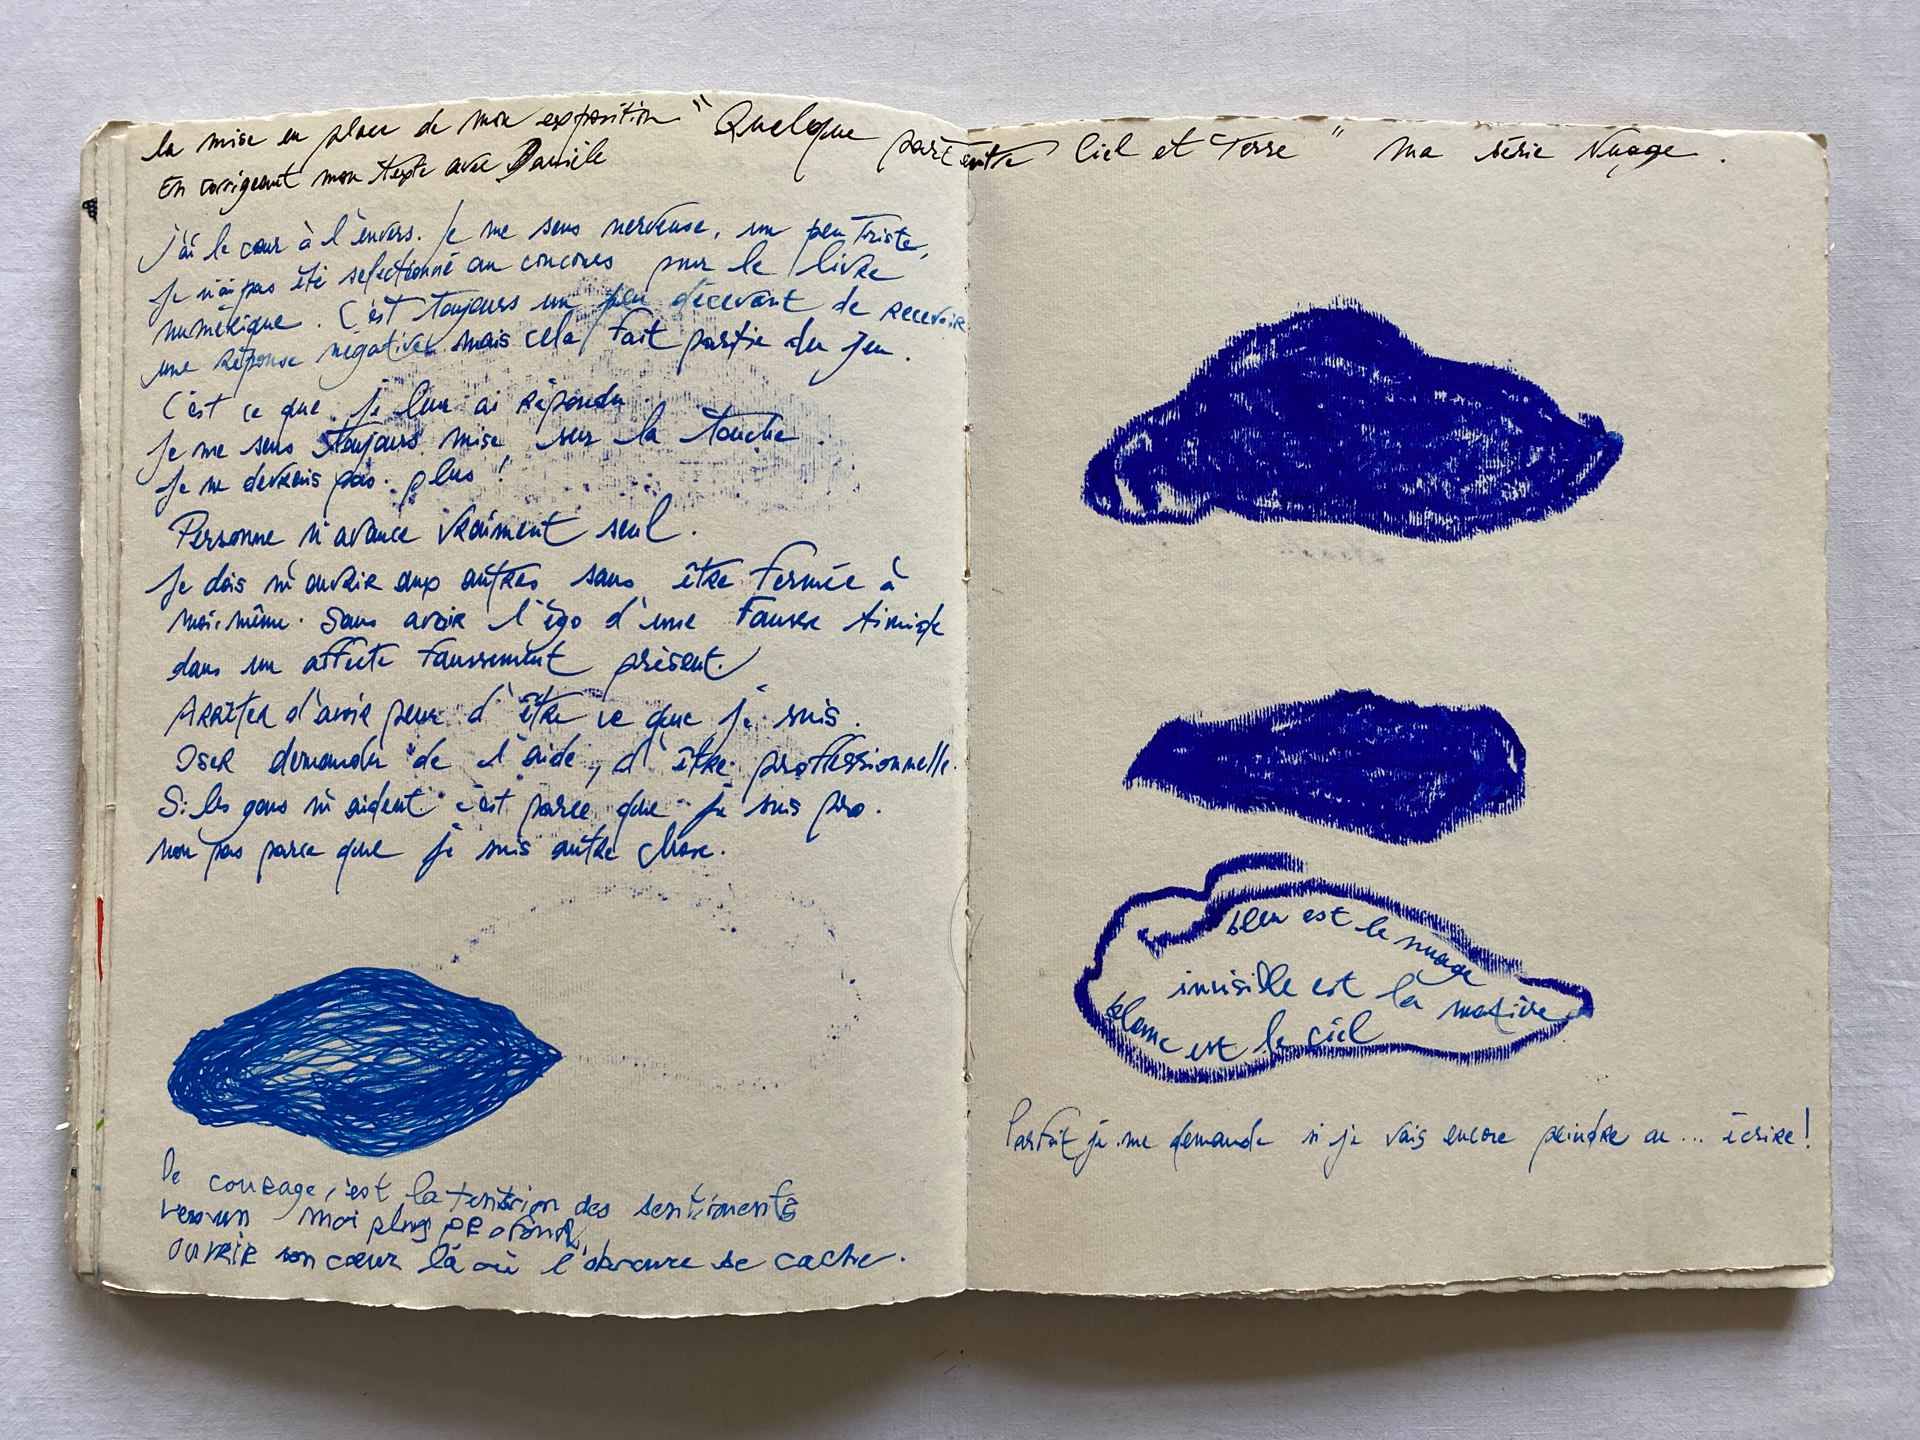 la mise en place de mon exposition "Quelque part entre Ciel et Terre" Ma série Nuage.
En corrigeant mon texte avec Danièle
J'ai le cœur à l'envers. Je me sens nerveuse, un peu Triste,
Je n'ai pas été sélectionné au concours pour le livre
numérique. C'est toujours un peu décevant de recevoir
une réponse négative mais cela fait partie du jeu.
C'est ce que je leur ai répondu.
Je me sens toujours mise sur la touche.
Je ne devrais pas. plus!
Personne n'avance vraiment seul.
Je dois m'ouvrir aux autres sans être fermée à
moi-même. Sans avoir l'égo d'une fausse timide
dans un affecte faussement présent.
Arrêter d'avoir peur d'être ce que je suis.
Oser demander de l'aide, d'être professionnelle.
Si les gens m'aident c'est parce que je suis pro.
non pas parce que je suis autre chose.
Le courage, c'est la tension des sentiments
vers un moi plus profond,
ouvrir son cœur là où l'obscure se cache.
bleu est le nuage
invisible est la matière
blanc est le ciel
Parfois je me demande si je vais encore peindre ou... écrire!